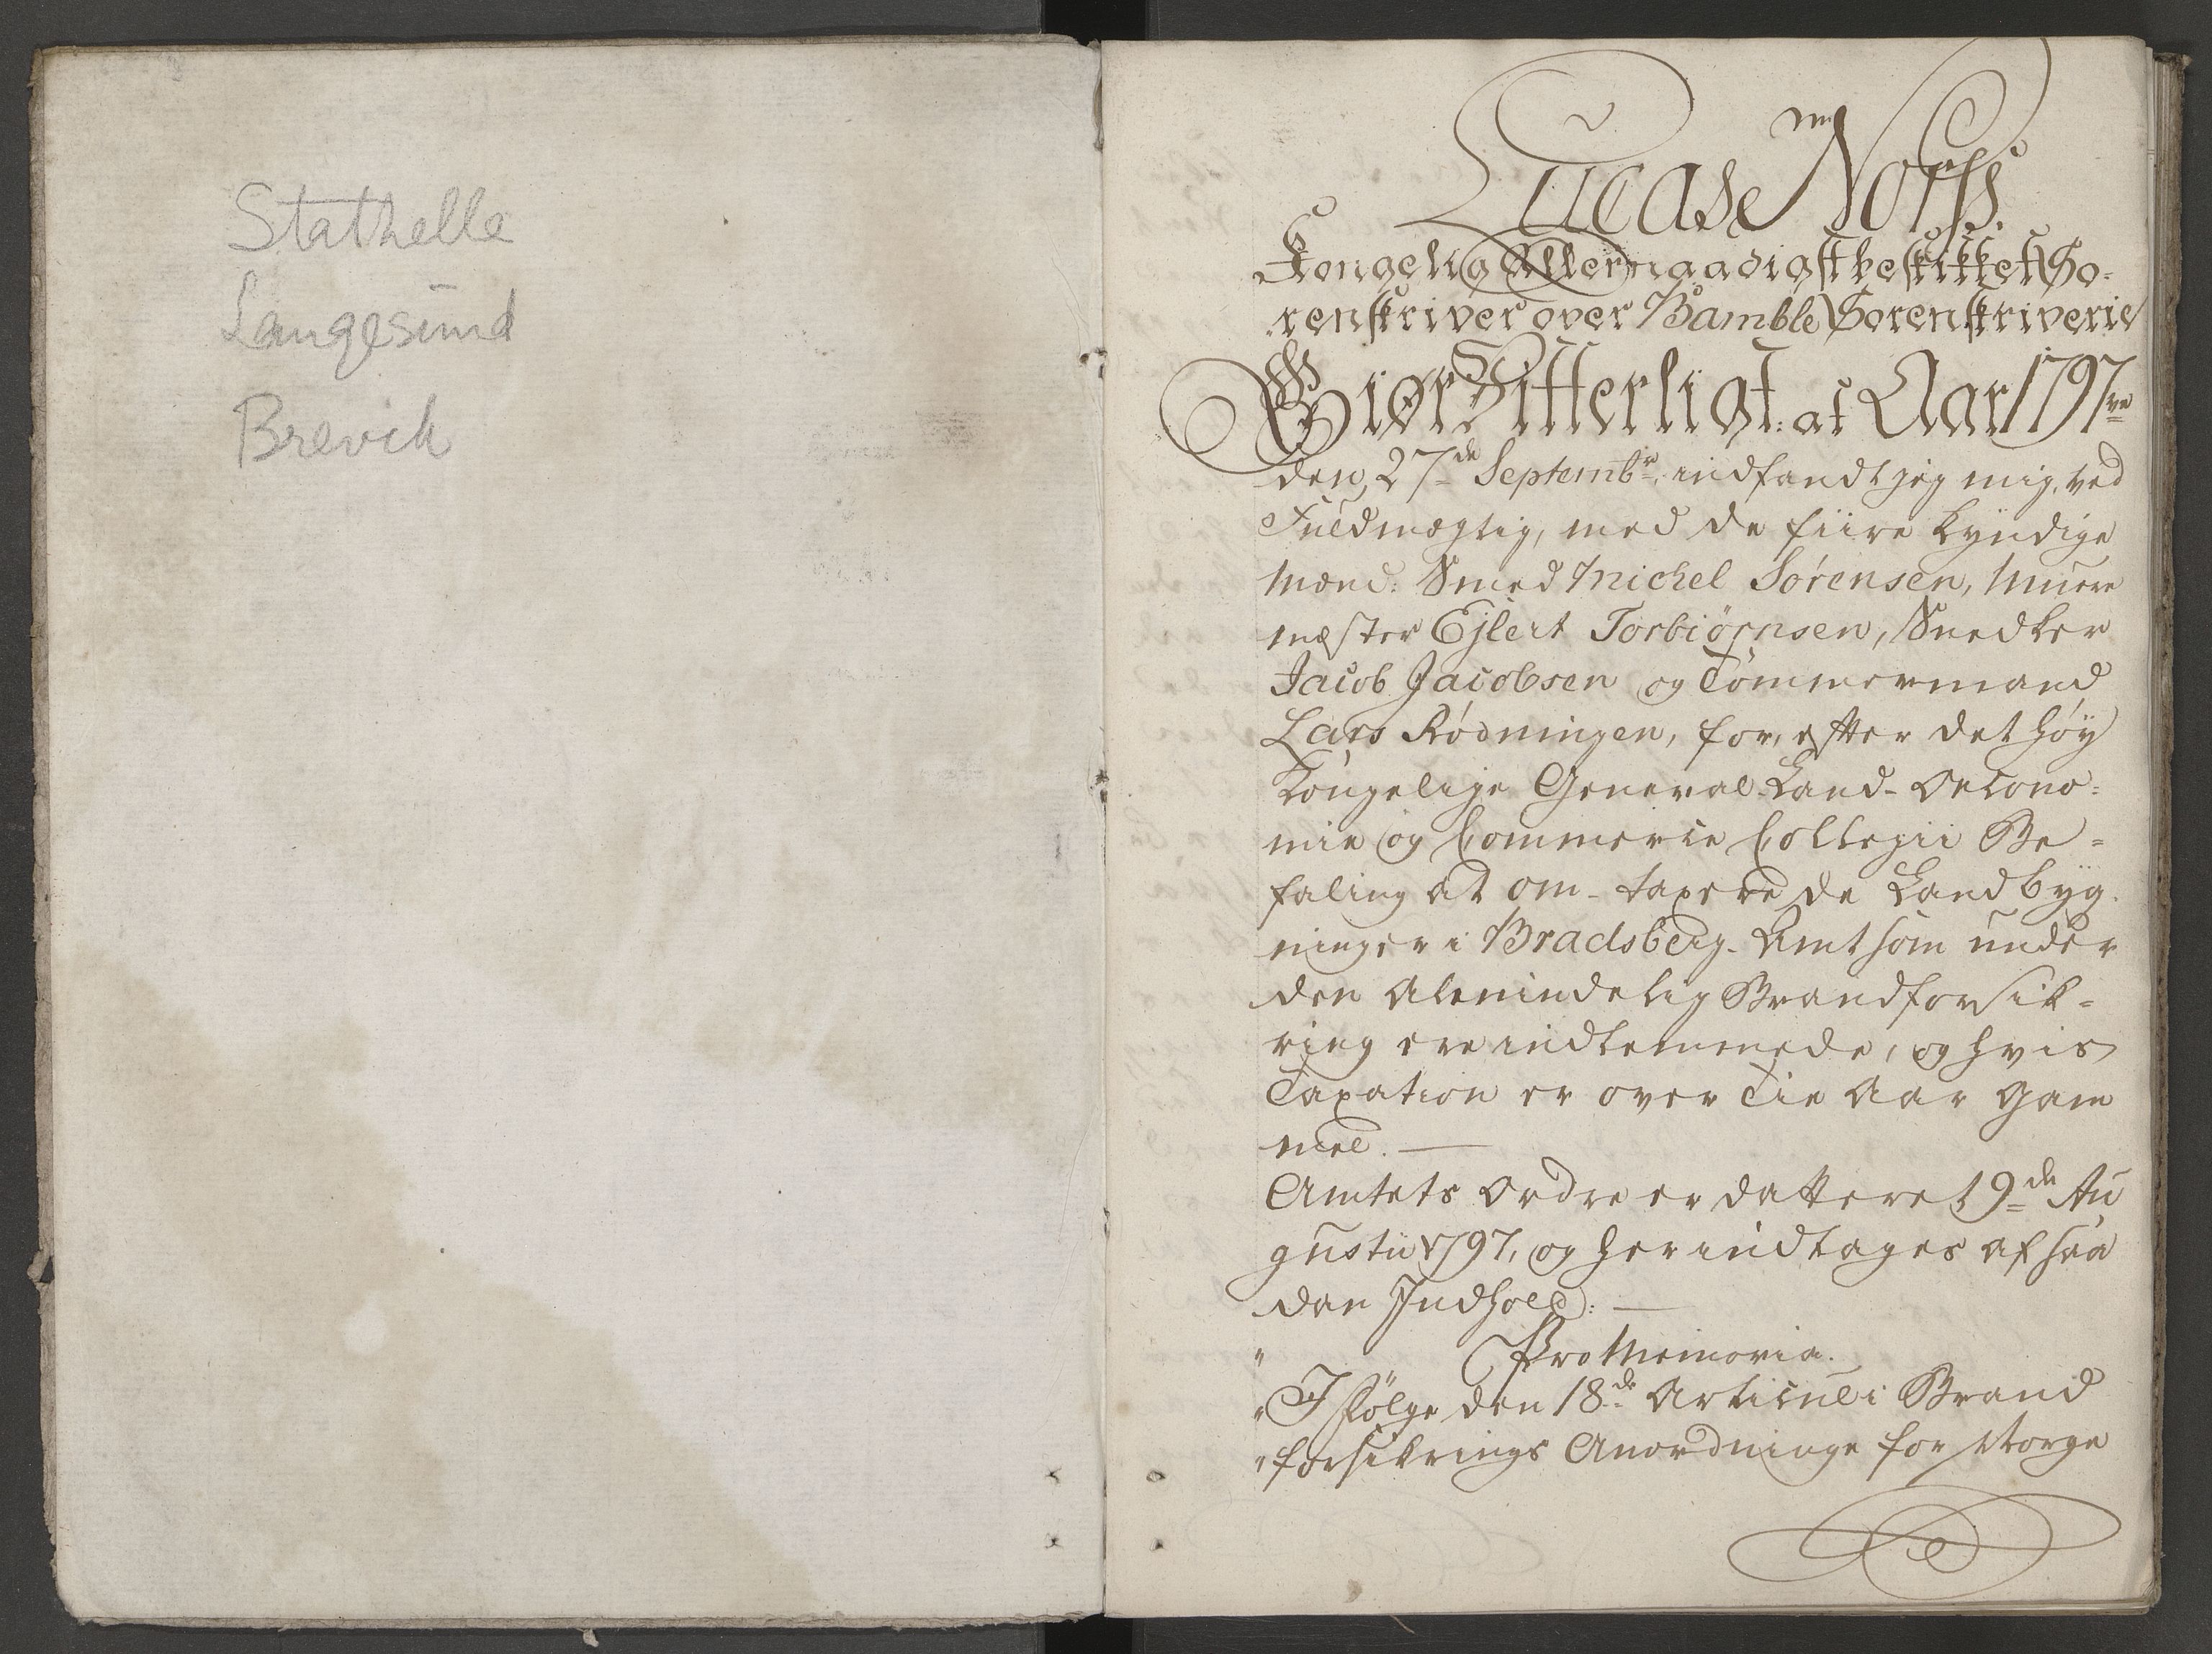 Stathelle
Langesund
Brevik
Lucase Norss.
Kongelig Allernaadigst beskikket So-
renskriver over Bamble Sorenskriverie
Giør Vitterligt: at Aar 1797ve
den 27de Septembr: indfandt jeg mig, ved
Fuldmægtig, med de fiire kyndige
Mænd: Smed Michel Sørensen, Muere
mester Ejlert Torbiørnsen, Snedker
Jacob Jacobsen og Tømmermand
Lars Rødningen, for, efter det høy
Kongelige General-Land-Oecono-
mie og Commerce Collegii Be-
faling at om-taxere de Landbyg-
ninger i Bradsberg-Amt som under
den Almindelig Brandforsik-
ring ere indlemmede, og hvis
Taxation er over Tie Aar gam
mel.
Amtets Ordre er datteret 9de Au
gustii 1797, og her indtages af saa
dan Indhold:
" Pro Memoria.
" I Følge den 18de Articul i Brand
" forsikrings Anordninge for Norge